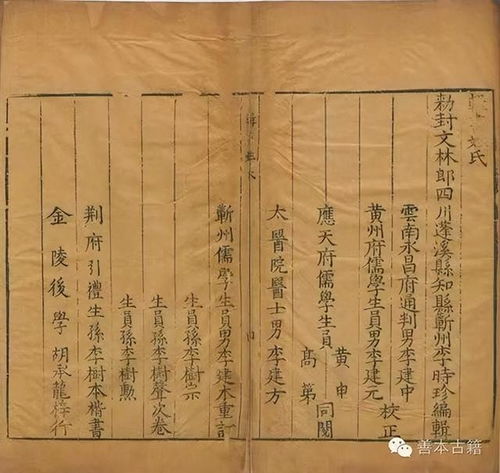 姓氏
勑封文林郎四川蓬溪縣知縣蘄州李時珍編輯
雲南永昌府通判男李建中
黃州府儒學生員男李建元
校正
應天府儒學生員
黃申
高第
同閱
太醫院醫士男李建方
蘄州儒學生員男李建木重訂
生員孫李樹宗
生員孫李樹聲次卷
生員孫李樹勳
荆府引禮生孫李樹本楷書
金陵後學胡承龍梓行
善本古籍